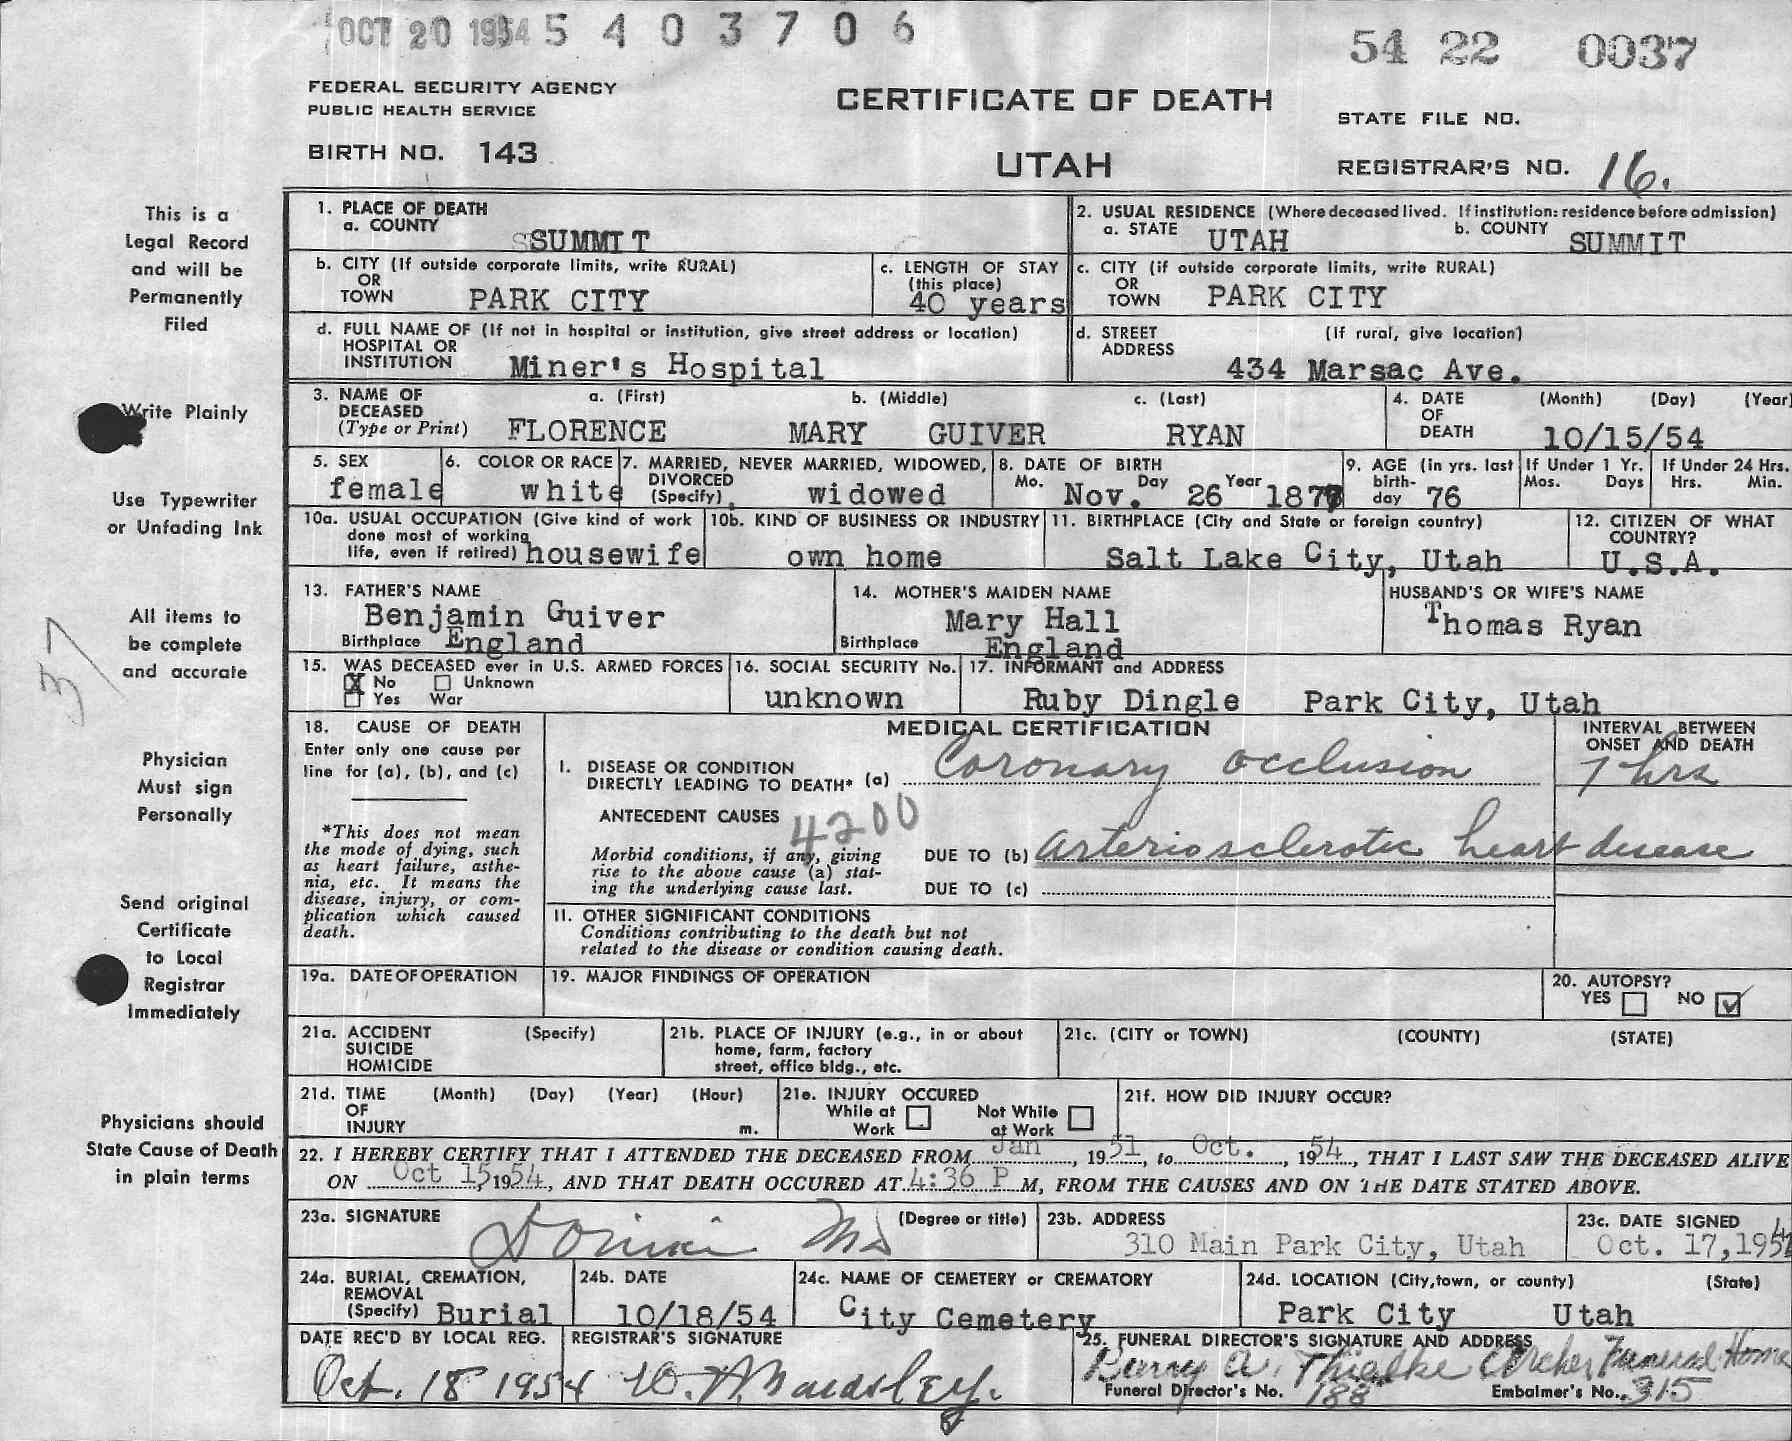 OCT 20 1954 5 4 0 3 7 0 6
54 22 0037
FEDERAL SECURITY AGENCY
PUBLIC HEALTH SERVICE
CERTIFICATE OF DEATH
STATE FILE NO.
BIRTH NO. 143
UTAH
REGISTRAR'S NO. 16.
This is a
Legal Record
and will be
Permanently
Filed
Write Plainly
Use Typewriter
or Unfading Ink
All items to
be complete
and accurate
37
Physician
Must sign
Personally
Send original
Certificate
to Local
Registrar
Immediately
Physicians should
State Cause of Death
in plain terms
1. PLACE OF DEATH
a. COUNTY SSUMMIT
2. USUAL RESIDENCE (Where deceased lived. If institution: residence before admission)
a. STATE UTAH b. COUNTY SUMMIT
b. CITY (If outside corporate limits, write RURAL)
OR
TOWN PARK CITY
c. LENGTH OF STAY
(this place)
40 years
c. CITY (if outside corporate limits, write RURAL)
OR
TOWN PARK CITY
d. FULL NAME OF (If not in hospital or institution, give street address or location)
HOSPITAL OR
INSTITUTION Miner's Hospital
d. STREET (If rural, give location)
ADDRESS
434 Marsac Ave.
3. NAME OF a. (First) b. (Middle) c. (Last)
DECEASED
(Type or Print) FLORENCE MARY GUIVER RYAN
4. DATE (Month) (Day) (Year)
OF
DEATH 10/15/54
5. SEX
female
6. COLOR OR RACE
white
7. MARRIED, NEVER MARRIED, WIDOWED,
DIVORCED
(Specify) widowed
8. DATE OF BIRTH
Mo. Day Year
Nov. 26 1877
9. AGE (in yrs. last
birth-
day 76
If Under 1 Yr.
Mos. Days
If Under 24 Hrs.
Hrs. Min.
10a. USUAL OCCUPATION (Give kind of work
done most of working
life, even if retired) housewife
10b. KIND OF BUSINESS OR INDUSTRY
own home
11. BIRTHPLACE (City and State or foreign country)
Salt Lake City, Utah
12. CITIZEN OF WHAT
COUNTRY?
U.S.A.
13. FATHER'S NAME
Benjamin Guiver
Birthplace England
14. MOTHER'S MAIDEN NAME
Mary Hall
Birthplace England
HUSBAND'S OR WIFE'S NAME
Thomas Ryan
15. WAS DECEASED ever in U.S. ARMED FORCES
X No Unknown
Yes War
16. SOCIAL SECURITY No.
unknown
17. INFORMANT and ADDRESS
Ruby Dingle Park City, Utah
18. CAUSE OF DEATH
Enter only one cause per
line for (a), (b), and (c)
*This does not mean
the mode of dying, such
as heart failure, asthe-
nia, etc. It means the
disease, injury, or com-
plication which caused
death.
MEDICAL CERTIFICATION
INTERVAL BETWEEN
ONSET AND DEATH
I. DISEASE OR CONDITION
DIRECTLY LEADING TO DEATH* (a) Coronary occlusion 7 hrs
ANTECEDENT CAUSES 4200
Morbid conditions, if any, giving
rise to the above cause (a) stat-
ing the underlying cause last.
DUE TO (b) arteriosclerotic heart disease
DUE TO (c)
II. OTHER SIGNIFICANT CONDITIONS
Conditions contributing to the death but not
related to the disease or condition causing death.
19a. DATE OF OPERATION
19. MAJOR FINDINGS OF OPERATION
20. AUTOPSY?
YES NO
21a. ACCIDENT (Specify)
SUICIDE
HOMICIDE
21b. PLACE OF INJURY (e.g., in or about
home, farm, factory
street, office bldg., etc.
21c. (CITY or TOWN) (COUNTY) (STATE)
21d. TIME (Month) (Day) (Year) (Hour)
OF
INJURY m.
21e. INJURY OCCURED
While at Not While
Work at Work
21f. HOW DID INJURY OCCUR?
22. I HEREBY CERTIFY THAT I ATTENDED THE DECEASED FROM Jan, 1951, to Oct., 1954, THAT I LAST SAW THE DECEASED ALIVE
ON Oct 15, 1954, AND THAT DEATH OCCURED AT 4:36 P M, FROM THE CAUSES AND ON THE DATE STATED ABOVE.
23a. SIGNATURE (Degree or title)
MD
23b. ADDRESS
310 Main Park City, Utah
23c. DATE SIGNED
Oct. 17, 1954
24a. BURIAL, CREMATION,
REMOVAL
(Specify) Burial
24b. DATE
10/18/54
24c. NAME OF CEMETERY or CREMATORY
City Cemetery
24d. LOCATION (City, town, or county) (State)
Park City Utah
DATE REC'D BY LOCAL REG.
Oct. 18 1954
REGISTRAR'S SIGNATURE
25. FUNERAL DIRECTOR'S SIGNATURE AND ADDRESS
Archer Funeral Home
Funeral Director's No. 188 Embalmer's No. 315